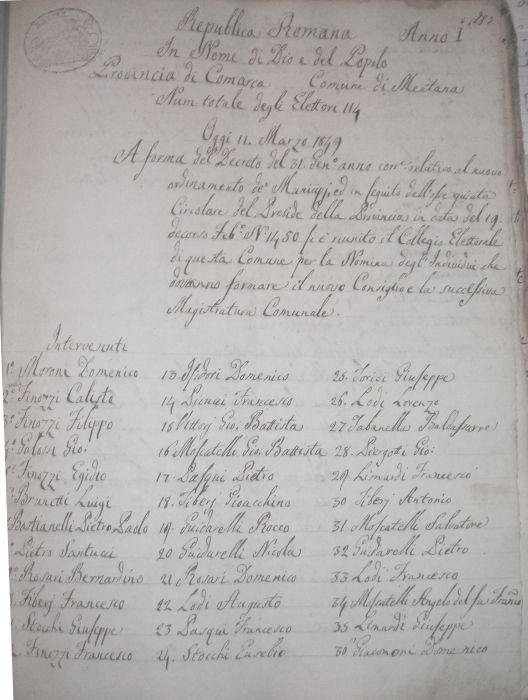 Republica Romana Anno I°
In Nome di Dio e del Popolo
Provincia di Comarca Comune di Mentana
Num totale degli Elettori 114
Oggi 11. Marzo 1849
A forma del Decreto del 31. Gen° anno cor.e relativo al nuovo
ordinamento de' Municipj, ed in seguito dell'
Circolare del Preside della Provincia in data del 19.
decorso Feb° N° 1450 si è riunito il Collegio Elettorale
di questa Comune per la Nomina degl'Individui che
dovranno formare il nuovo Consiglio e la successiva
Magistratura Comunale.
Intervenuti
1° Moroni Domenico 13. Isidori Domenico 25. Torici Giuseppe
2° Finozzi Calisto 14. Francesco 26. Lodi Lorenzo
3° Finozzi Filippo 15. Vittorj Gio: Battista 27. Tabanella Baldassarre
Gio: 16 Moscatelli Gio: Battista 28. Piergotti Gio:
Finozzi Egidio 17. Pasqui Pietro 29. Limardi Francesco
Brunetti Luigi 18. Tiberj Gioacchino 30 Tiberj Antonio
Bastianelli Pietro Paolo 19. Guidarelli Rocco 31 Moscatelli Salvatore
Pietro Santucci 20 Guidarelli Nicola 32 Guidarelli Pietro
Rosari Bernardino 21 Rosari Domenico 33 Lodi Francesco
Tiberj Francesco 22 Lodi Augusto 34 Moscatelli Angelo del fu Franco
Stocchi Giuseppe 23 Pasqui Francesco 35 Limardi Giuseppe
Finozzi Francesco 24. Stocchi Eusebio 36 Giacomoni Domenico